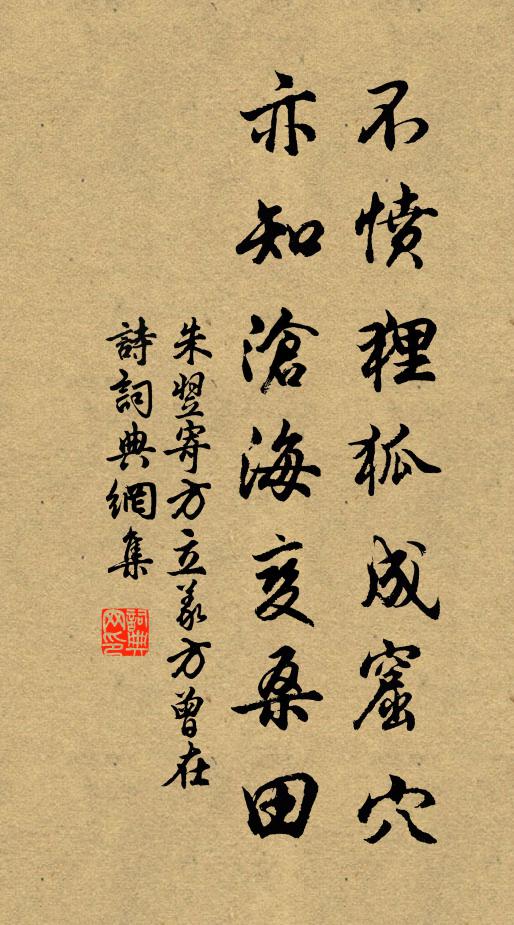 不憤狸狐成窟穴
亦知滄海变桑田
朱翌寄方立义方曾在
詩詞典網集
詞典
网印